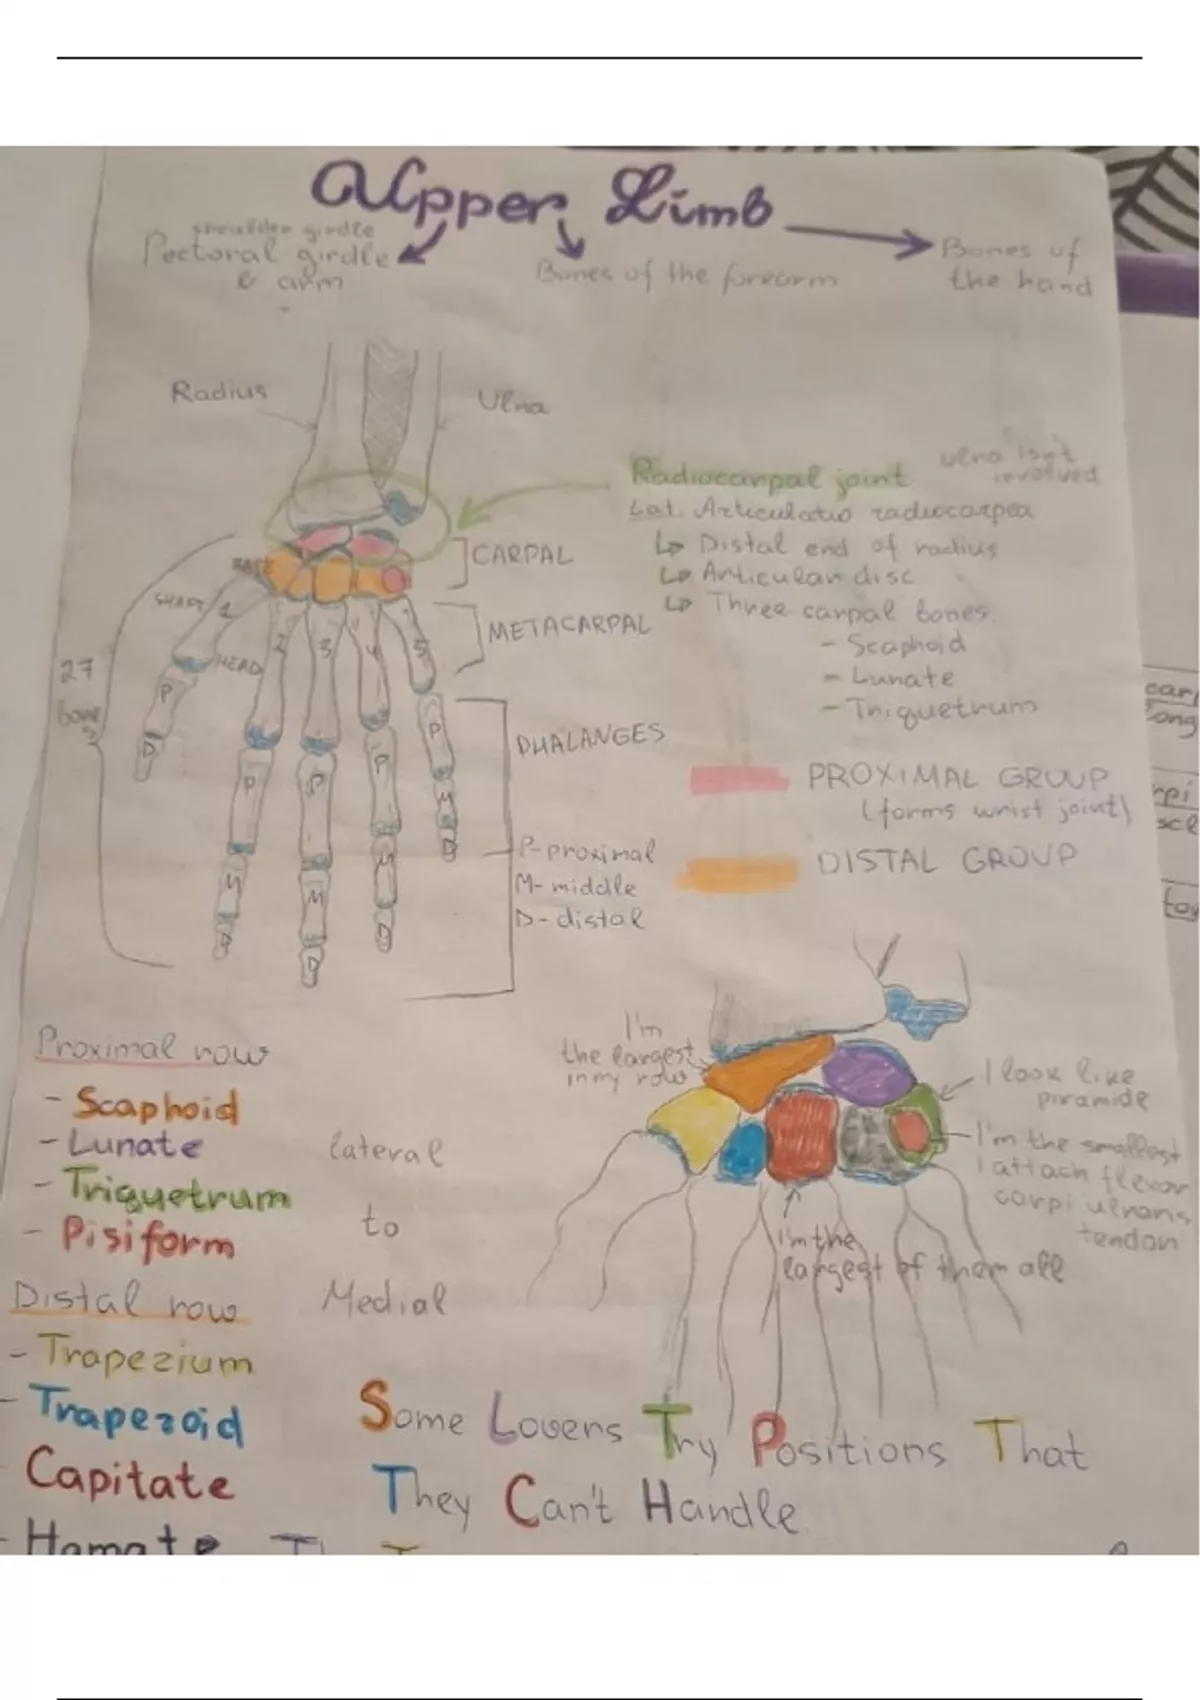 Upper Limb
shoulder girdle
Pectoral girdle
& arm
Bones of the forearm
Bones of
the hand
Radius
Ulna
Radiocarpal joint
ulna isn't
involved
Lat. Articulatio radiocarpea
↳ Distal end of radius
↳ Articular disc
↳ Three carpal bones
- Scaphoid
- Lunate
- Triquetrum
CARPAL
BASE
SHAFT
HEAD
1
2
3
4
5
METACARPAL
27
bones
PHALANGES
P
D
P
M
D
P
M
D
P
M
D
P
M
D
P-proximal
M-middle
D-distal
PROXIMAL GROUP
(forms wrist joint)
DISTAL GROUP
Proximal row
- Scaphoid
- Lunate
- Triquetrum
- Pisiform
lateral
to
Medial
Distal row
- Trapezium
- Trapezoid
Capitate
- Hamate
I'm
the largest
in my row
I look like
piramide
I'm the smallest
I attach flexor
carpi ulnaris
tendon
I'm the
largest of them all
Some Lovers Try Positions That
They Can't Handle